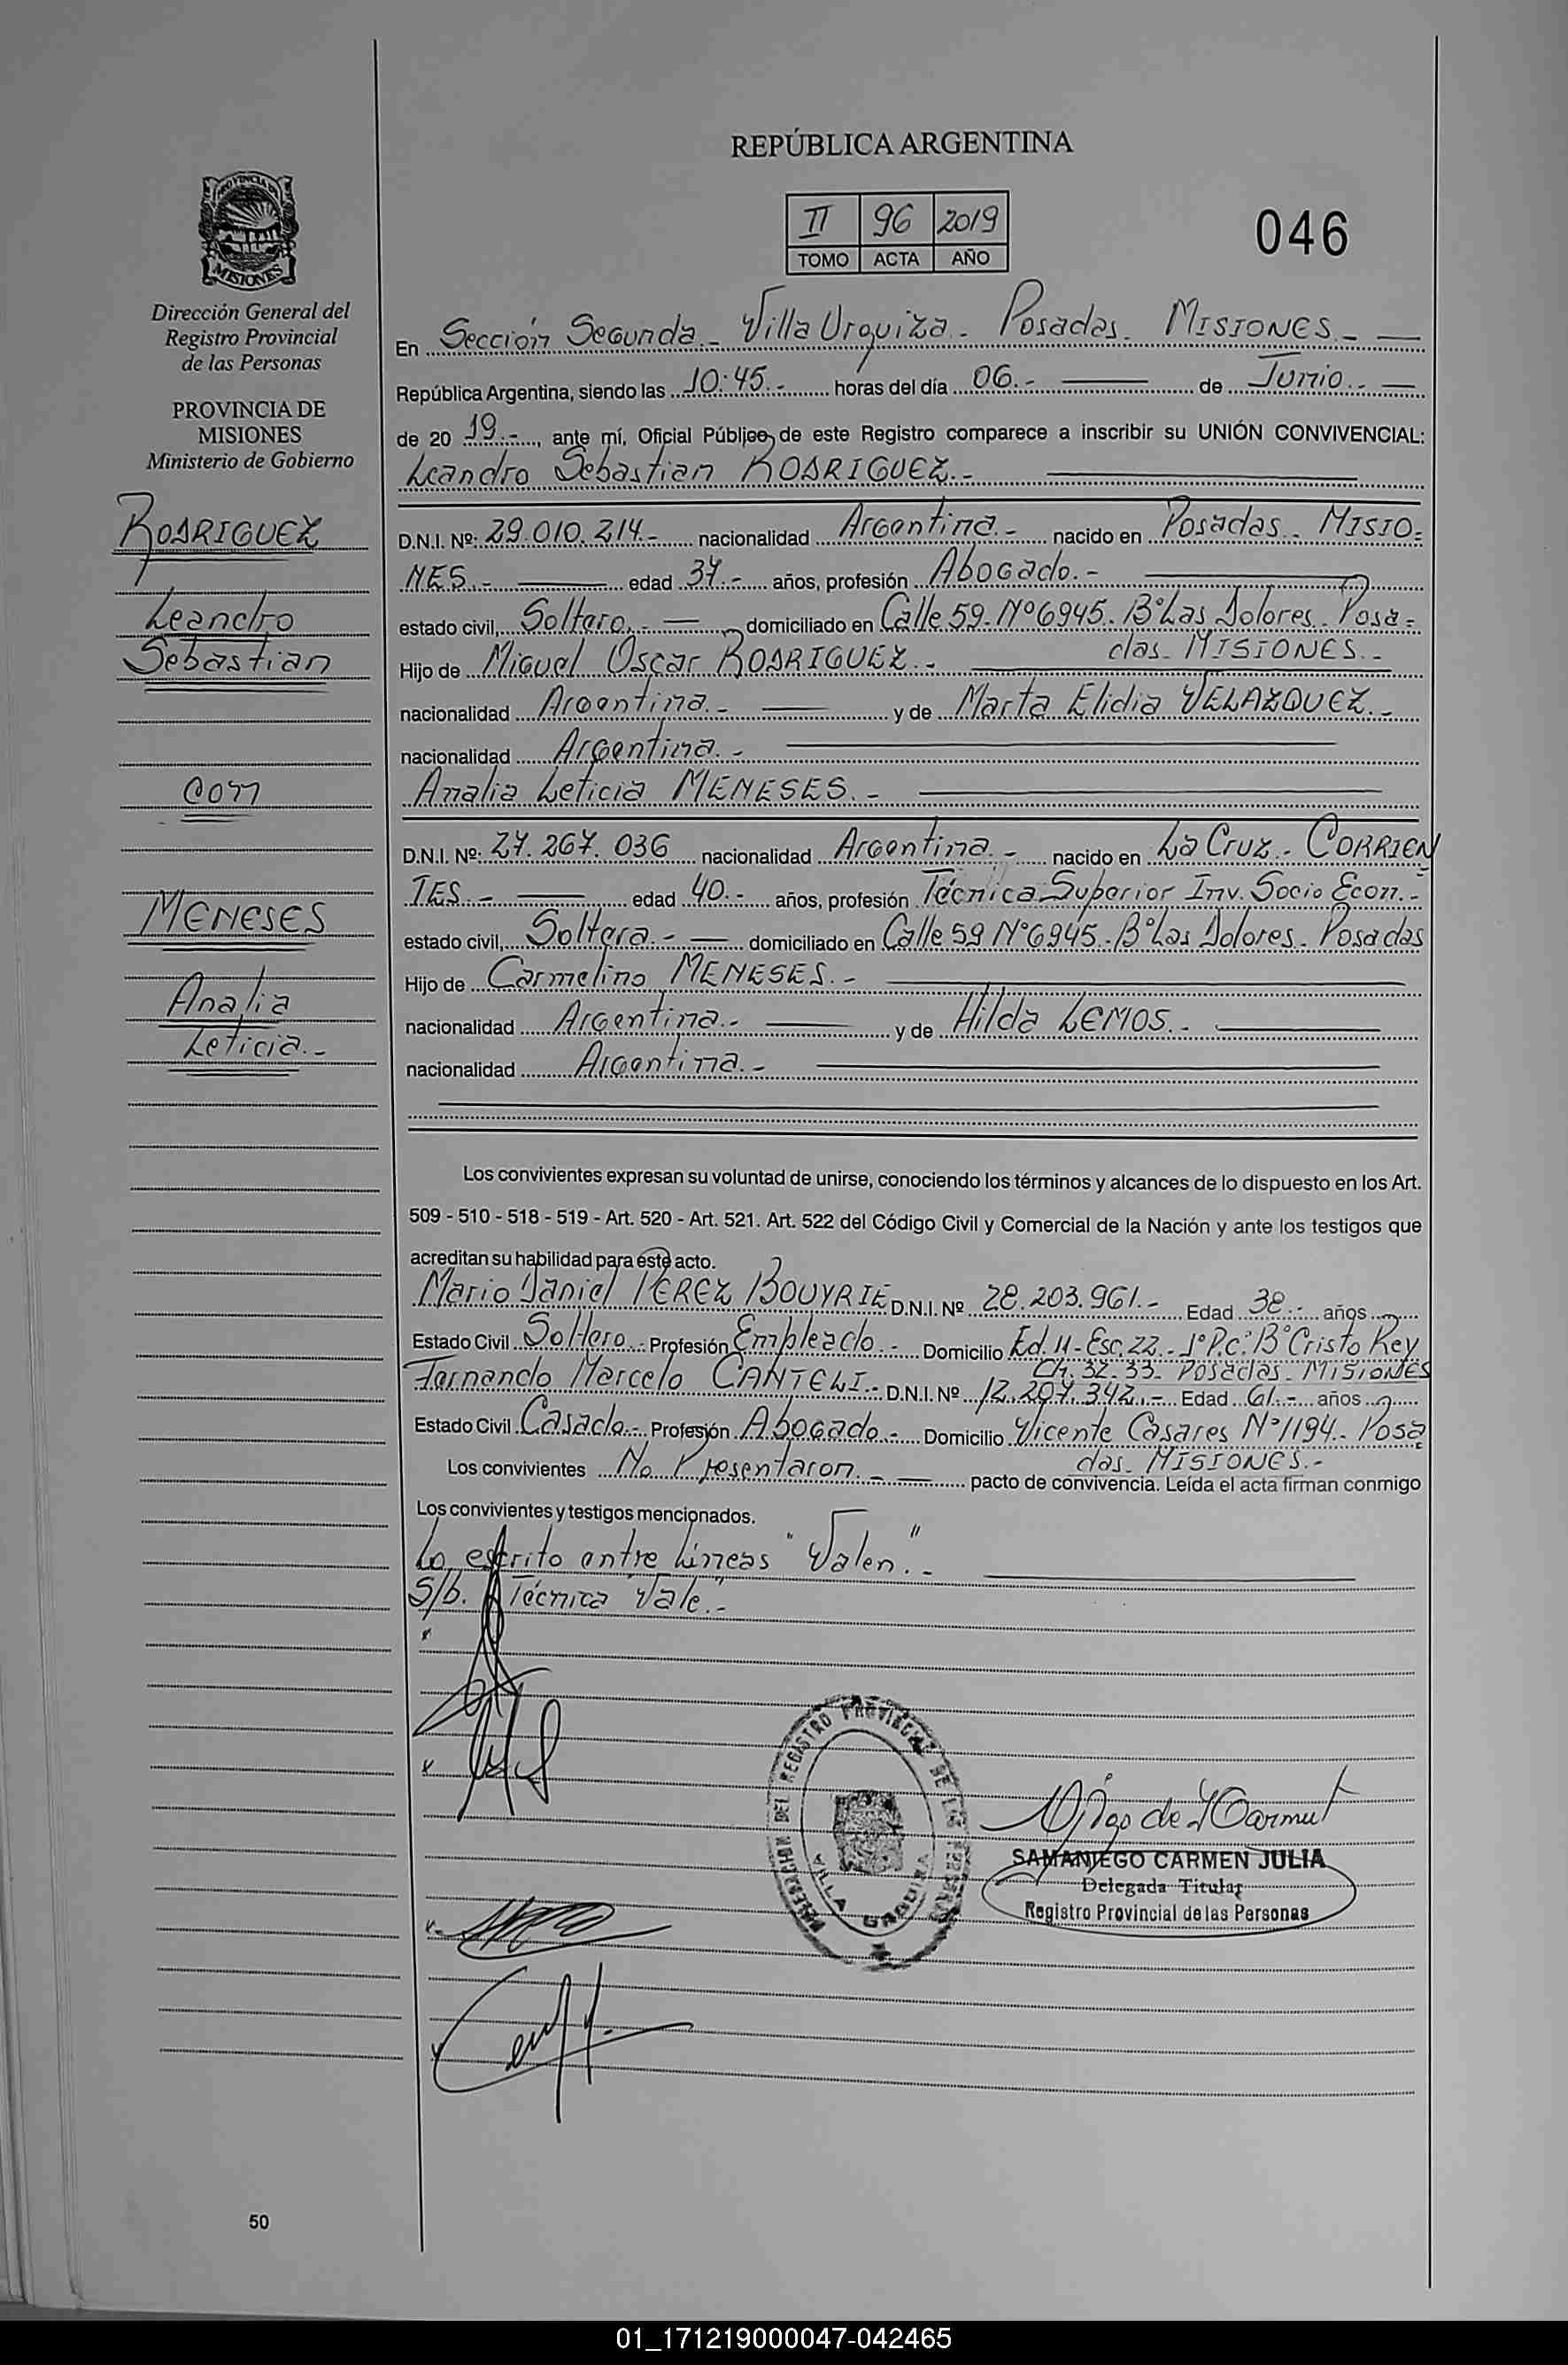 REPÚBLICA ARGENTINA
II 96 2019
TOMO ACTA AÑO
046
PROVINCIA DE
MISIONES
Dirección General del
Registro Provincial
de las Personas
PROVINCIA DE
MISIONES
Ministerio de Gobierno
RODRIGUEZ
Leandro
Sebastian
Con
MENESES
Analia
Leticia.-
En Sección Segunda.- Villa Urquiza.- Posadas.- MISIONES.-
República Argentina, siendo las 10:45.- horas del día 06.- de Junio.-
de 20 19.-, ante mí, Oficial Público de este Registro comparece a inscribir su UNIÓN CONVIVENCIAL:
Leandro Sebastian RODRIGUEZ.-
D.N.I. Nº: 29.010.214.- nacionalidad Argentina.- nacido en Posadas.- MISIO-
NES.- edad 37.- años, profesión Abogado.-
estado civil, Soltero.- domiciliado en Calle 59.- Nº6945. Bº Las Dolores.- Posa-
das.- MISIONES.-
Hijo de Miguel Oscar RODRIGUEZ.-
nacionalidad Argentina.- y de Marta Elidia VELAZQUEZ.-
nacionalidad Argentina.-
Analia Leticia MENESES.-
D.N.I. Nº: 27.267.036 nacionalidad Argentina.- nacido en La Cruz.- CORRIEN
TES.- edad 40.- años, profesión Técnica Superior Inv. Socio Econ.-
estado civil, Soltera.- domiciliado en Calle 59 Nº6945.- Bº Las Dolores.- Posadas
Hijo de Carmelino MENESES.-
nacionalidad Argentina.- y de Hilda LEMOS.-
nacionalidad Argentina.-
Los convivientes expresan su voluntad de unirse, conociendo los términos y alcances de lo dispuesto en los Art.
509 - 510 - 518 - 519 - Art. 520 - Art. 521. Art. 522 del Código Civil y Comercial de la Nación y ante los testigos que
acreditan su habilidad para este acto.
Mario Daniel PEREZ BOUYRIE D.N.I. Nº 28.203.961.- Edad 38.- años
Estado Civil Soltero.- Profesión Empleado.- Domicilio Ed. 11- Esc. 22.- 1º P.C. Bº Cristo Rey
Ch. 32.33.- Posadas.- MISIONES
Fernando Marcelo CANTELI.- D.N.I. Nº 12.207.342.- Edad 61.- años
Estado Civil Casado.- Profesión Abogado.- Domicilio Vicente Casares Nº1194.- Posa
das.- MISIONES.-
Los convivientes No Presentaron.- pacto de convivencia. Leída el acta firman conmigo
Los convivientes y testigos mencionados.
Lo escrito entre líneas "Valen".-
S/b. Técnica "Vale".-
REGISTRO PROVINCIAL DE LAS PERSONAS
VILLA URQUIZA
SAMANIEGO CARMEN JULIA
Delegada Titular
Registro Provincial de las Personas
50
01_171219000047-042465